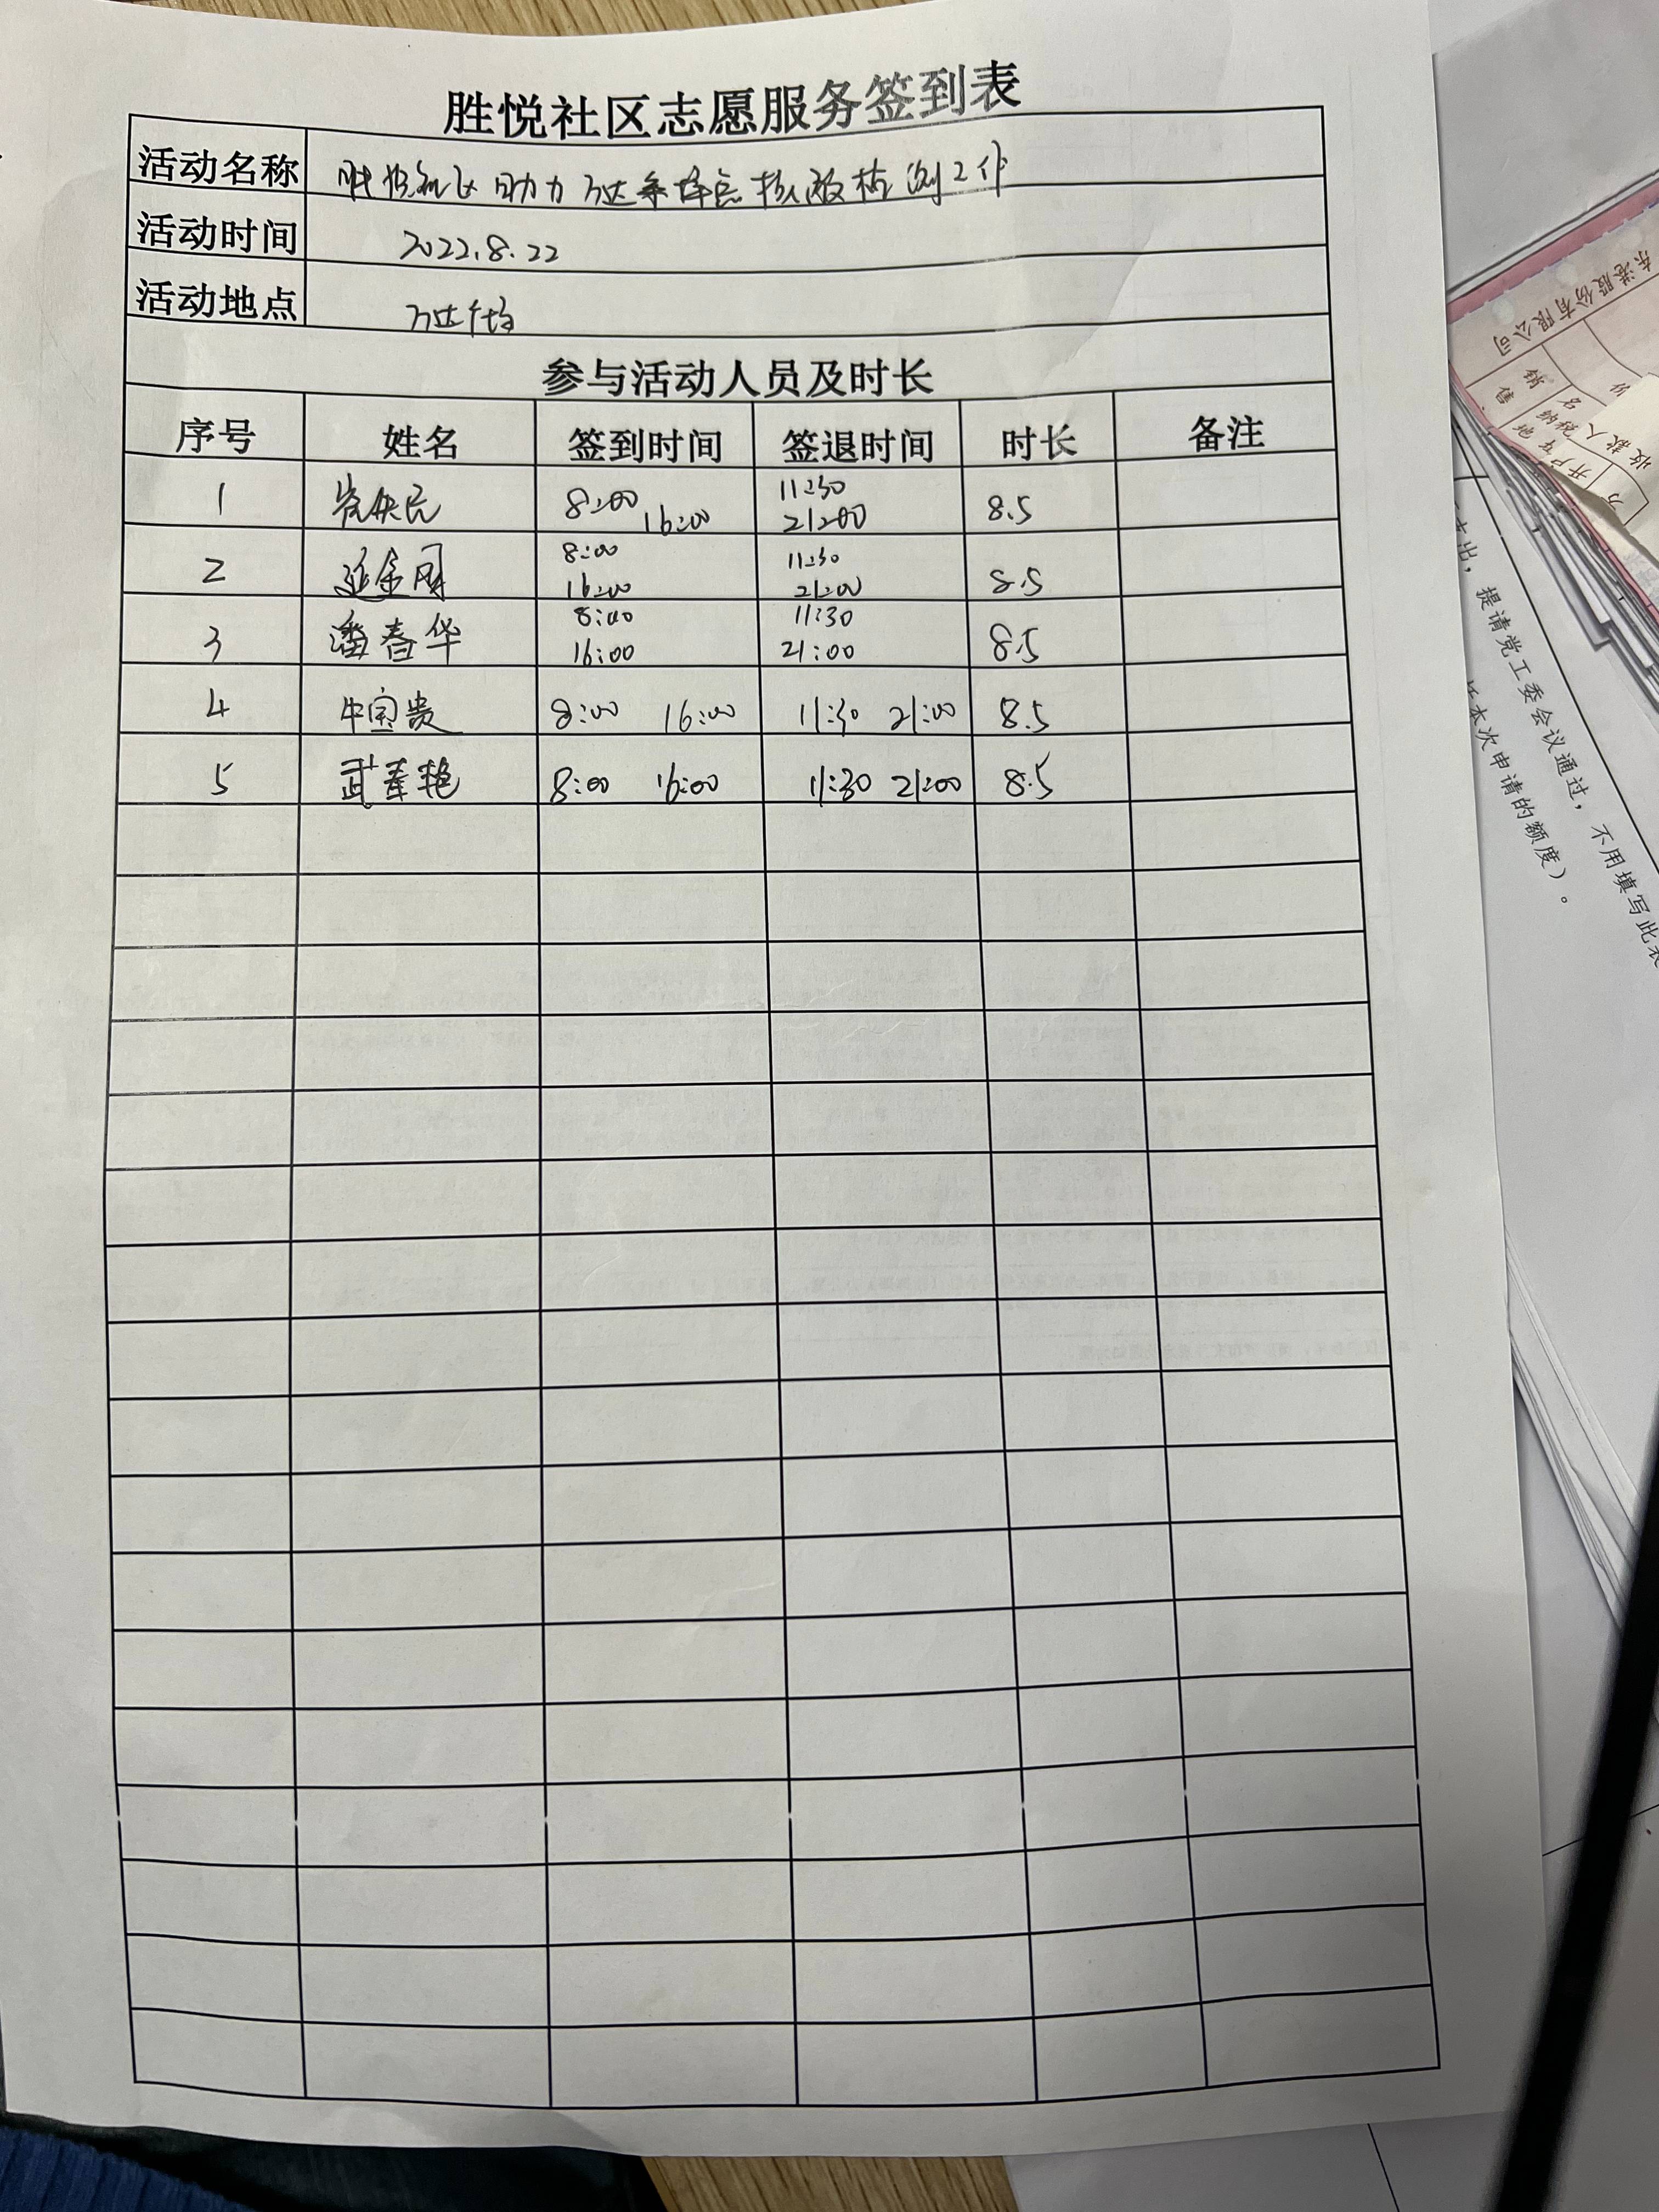 胜悦社区志愿服务签到表
活动名称 胜悦社区助力万达采样点核酸检测工作
活动时间 2022.8.22
活动地点 万达广场
参与活动人员及时长
序号 姓名 签到时间 签退时间 时长 备注
1 8:00 16:00 11:30 21:00 8.5
2 延金周 8:00 16:00 11:30 21:00 8.5
3 潘春华 8:00 16:00 11:30 21:00 8.5
4 牛宝贵 8:00 16:00 11:30 21:00 8.5
5 武春艳 8:00 16:00 11:30 21:00 8.5
东港股份有限公司
销售
收款人
开户
万
支出，提请党工委会议通过，不用填写此表
本次申请的额度）。